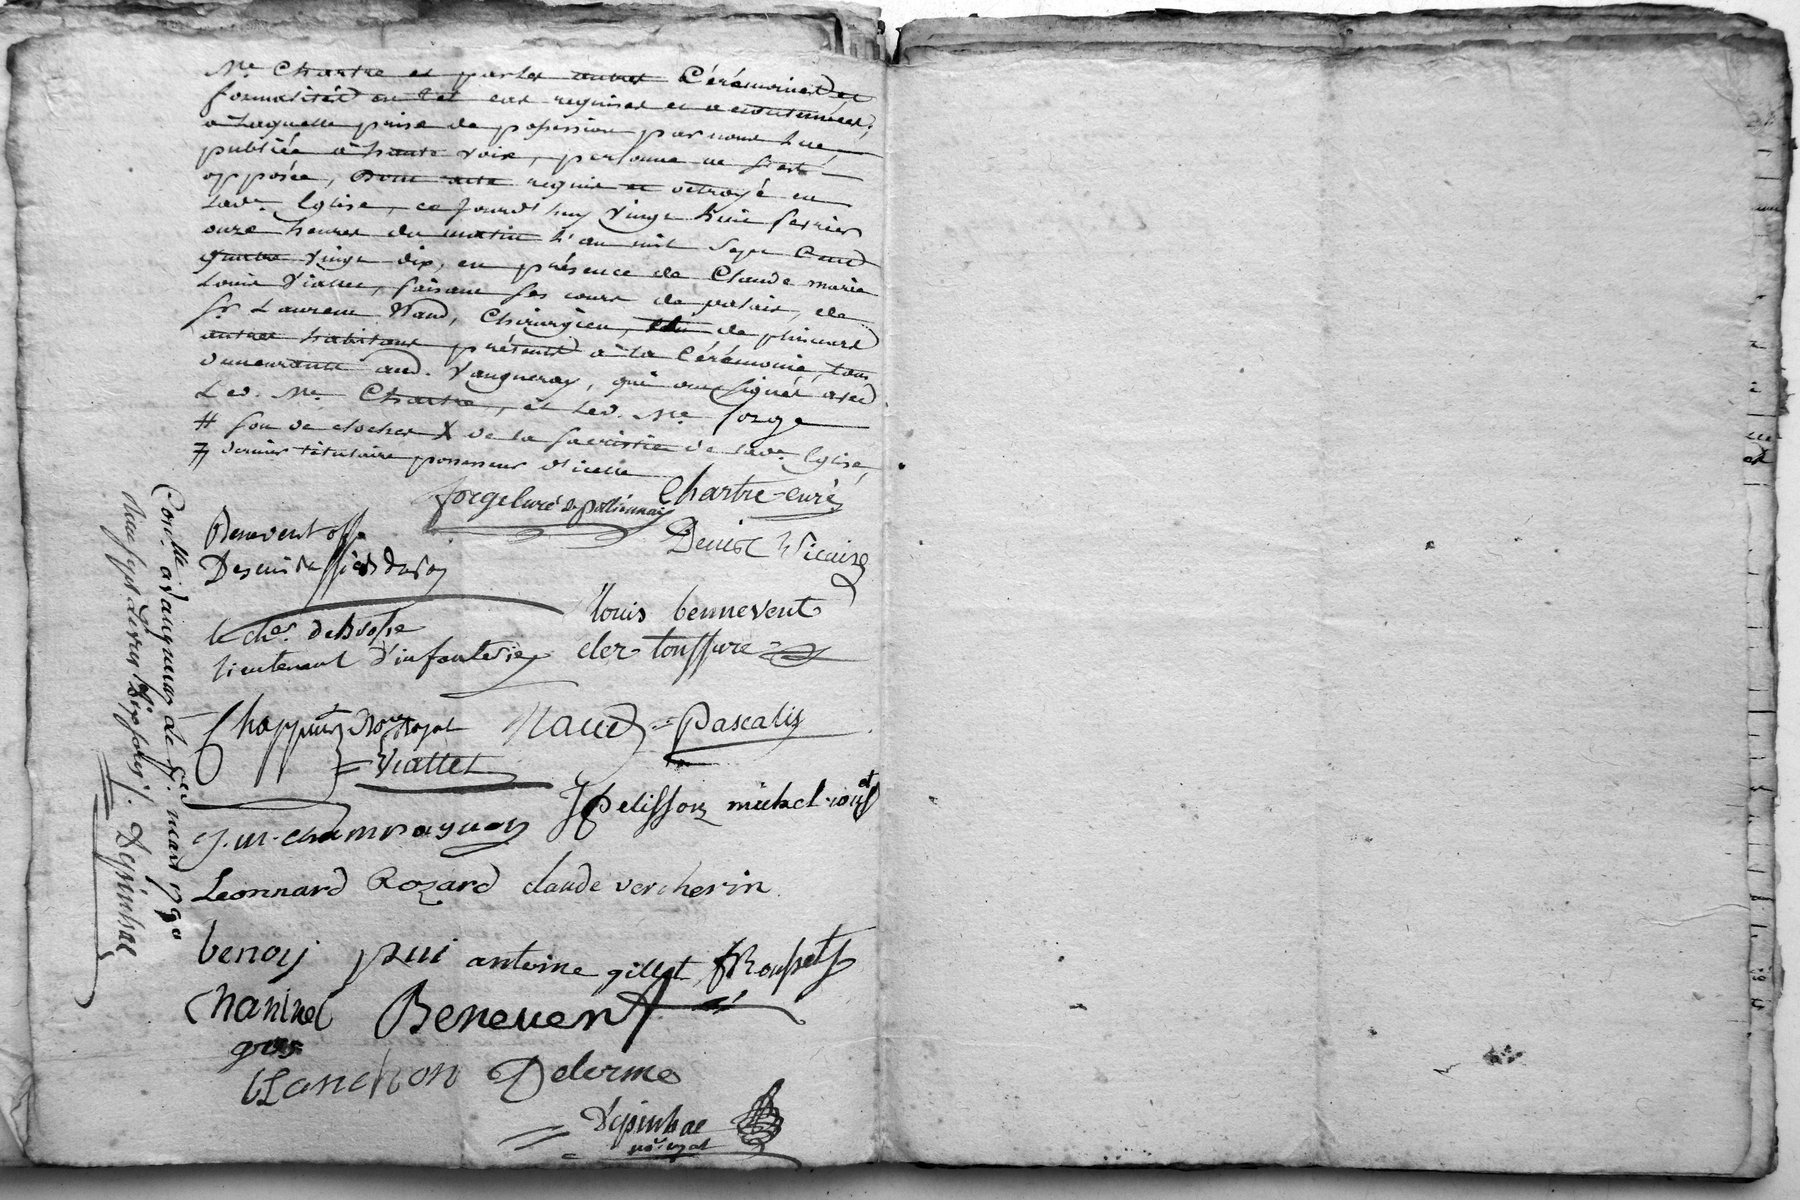 Me Chartre et par les autres Cérémonies et
formalités en tel cas requises et accoutumées;
a laquelle prise de possession par nous lue
publiée à haute voix, personne ne s'est
opposée, Dont acte requis et octroyé en
lade. Eglise, ce jourd'huy vingt huit fevrier
onze heures du matin l'an mil sept Cent
quatre vingt dix, en présence de Claude marie
Louis Viallet, faisant ses cours de palais, de
Sr. Laurent Naud, Chirurgien, et de plusieurs
autres habitans présents à la Cérémonie, tous
demeurants aud. Vaugneray, qui ont signés avec
Led. Me. Chartre, et led. Me forge
# son de cloches X de la sacristie de lade. Eglise,
7 dernier titulaire possesseur d'icelle
forge Curé de pollionnay Chartre-curé
Benevent
Denis Vicaire
le cher. deBrosse
louis bennevent
lieutenant d'infanterie cler tonssure
Chappuis Nore Royal Naud Pascalis
Viallet
J pelisson michel
j. m. champagnon
Leonnard Rozard claude vercherin
benoij pui antoine gillet Rousset
Benevent
gros
Blanchon Delorme
Depinhac
nore. royal
Conlle. a Vaugneray le mars 1790
Depinhac